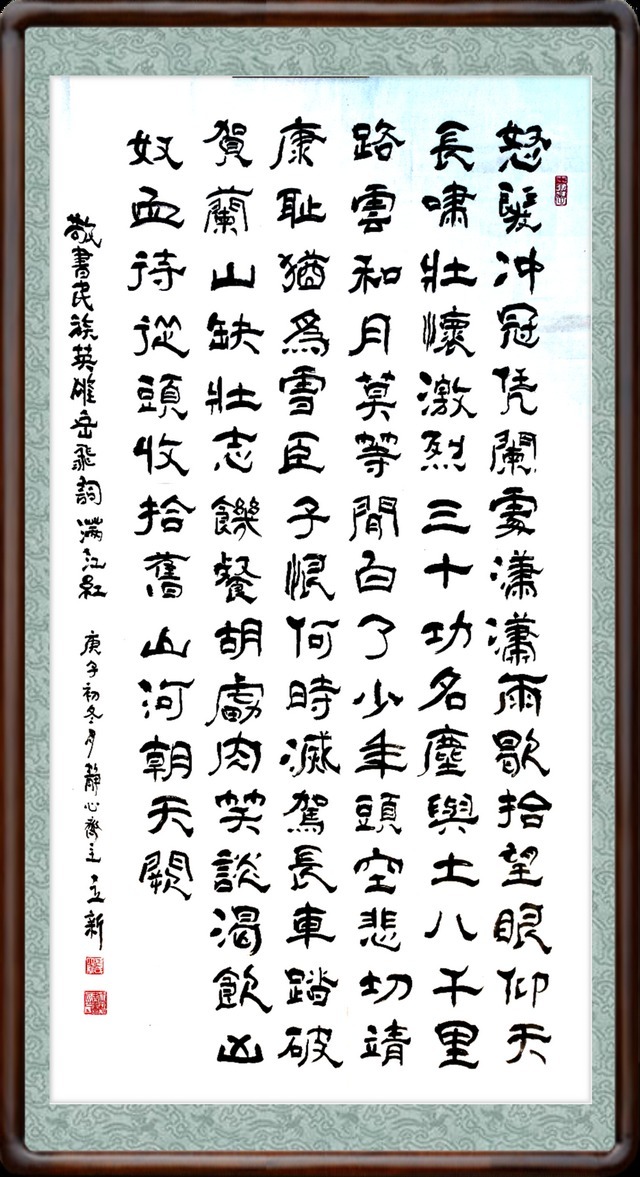 怒髮冲冠凭闌處潇潇雨歇拾望眼仰天
長嘯壯懷激烈三十功名塵與土八千里
路雲和月莫等閒白了少年頭空悲切靖
康耻猶為雪臣子恨何時滅駕長車踏破
賀蘭山缺壯志饑餐胡虜肉笑談渴飲凶
奴血待從頭收拾舊山河朝天闕
敬書民族英雄岳飛詞满江红 庚子初冬月靜心齋主立新